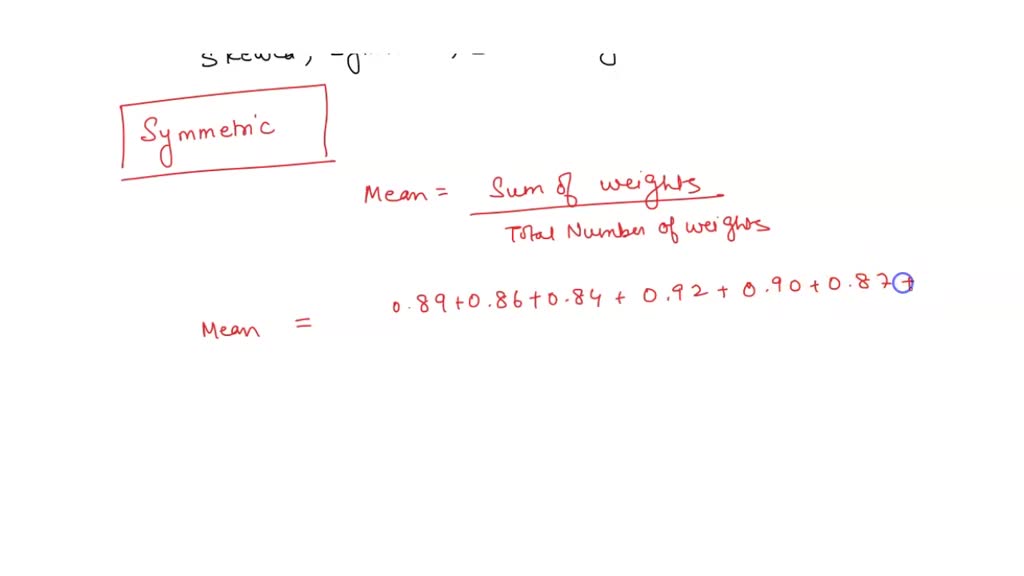 Symmetric
Mean = Sum of weights
Total Number of weights
0.89+0.86+0.84 + 0.92 + 0.90 + 0.87 +
Mean =